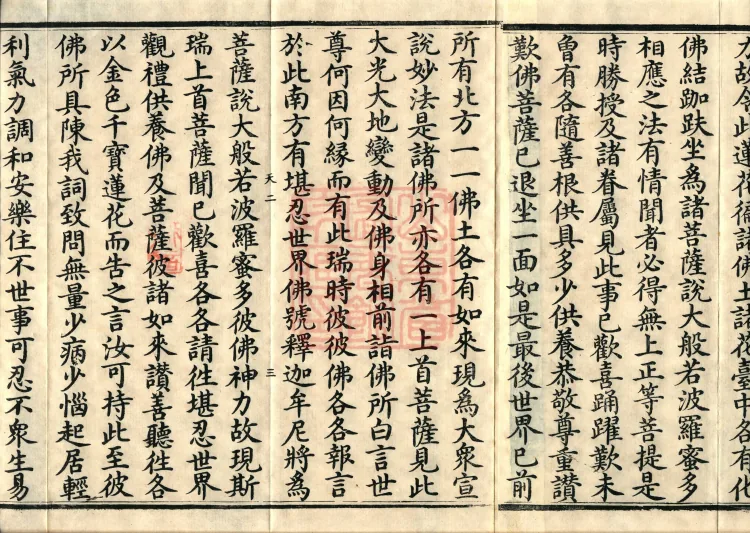 力故令此蓮花徧諸佛土諸花臺中各有化
佛結跏趺坐爲諸菩薩說大般若波羅蜜多
相應之法有情聞者必得無上正等菩提是
時勝授及諸眷屬見此事已歡喜踊躍歎未
曾有各隨善根供具多少供養恭敬尊重讚
歎佛菩薩已退坐一面如是最後世界已前
所有北方一一佛土各有如來現爲大衆宣
說妙法是諸佛所亦各有一上首菩薩見此
大光大地變動及佛身相前詣佛所白言世
尊何因何緣而有此瑞時彼彼佛各各報言
於此南方有堪忍世界佛號釋迦牟尼將爲
天二 三
菩薩說大般若波羅蜜多彼佛神力故現斯
瑞上首菩薩聞已歡喜各各請徃堪忍世界
觀禮供養佛及菩薩彼諸如來讚善聽徃各
以金色千寶蓮花而告之言汝可持此至彼
佛所具陳我詞致問無量少病少惱起居輕
利氣力調和安樂住不世事可忍不衆生易